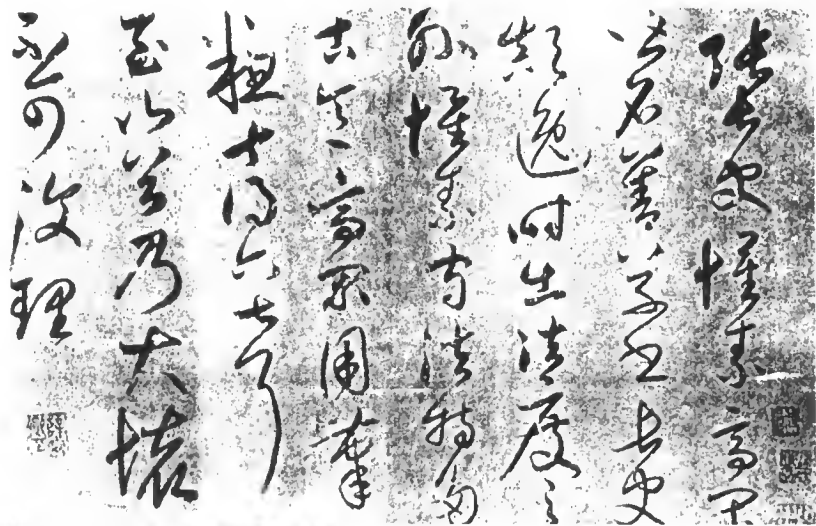 張長史懷素高閑
皆名善草書長史
顛逸時出法度之
外懷素守法特多
古意高閑用筆
粗十得六七耳
至山谷乃大壞
不可復理